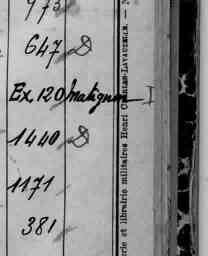 973
647 D
Ex. 120 Matignon I
1440 D
1171
381
rie et librairie militaires Henri Charles-Lavauzelle. —